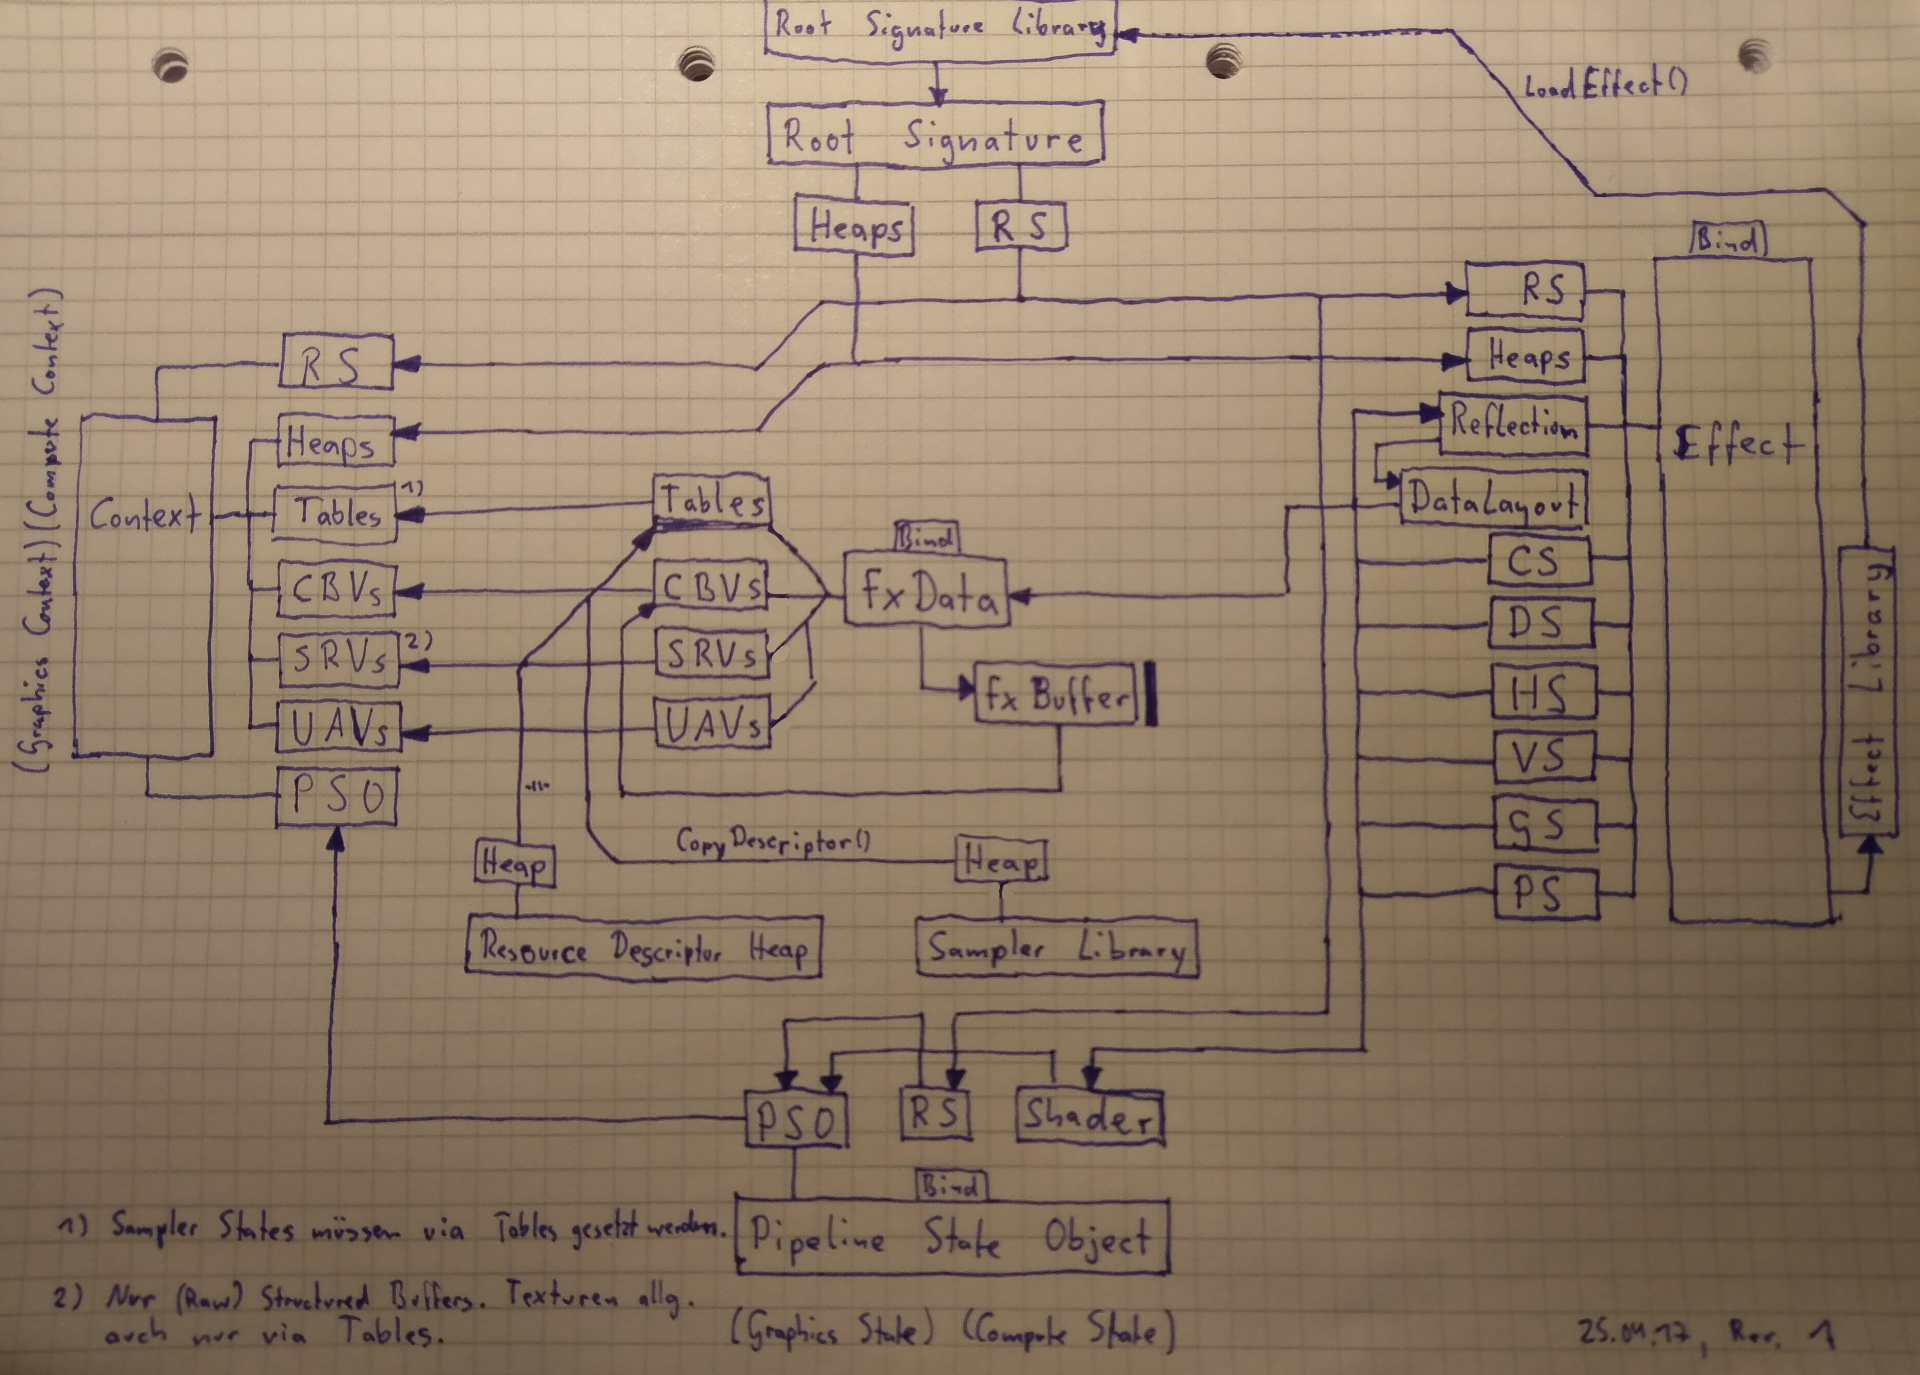 Root Signature Library
LoadEffect()
Root Signature
Heaps
RS
Bind
RS
Heaps
Reflection
DataLayout
CS
DS
HS
VS
GS
PS
Effect
Effect Library
(Graphics Context) (Compute Context)
Context
RS
Heaps
Tables 1)
CBVs
SRVs 2)
UAVs
PSO
Tables
CBVs
SRVs
UAVs
Bind
fxData
fxBuffer
-"-
CopyDescriptor()
Heap
Heap
Resource Descriptor Heap
Sampler Library
PSO
RS
Shader
Bind
Pipeline State Object
(Graphics State) (Compute State)
1) Sampler States müssen via Tables gesetzt werden.
2) Nur (Raw) Structured Buffers. Texturen allg.
auch nur via Tables.
25.04.17, Rev. 1